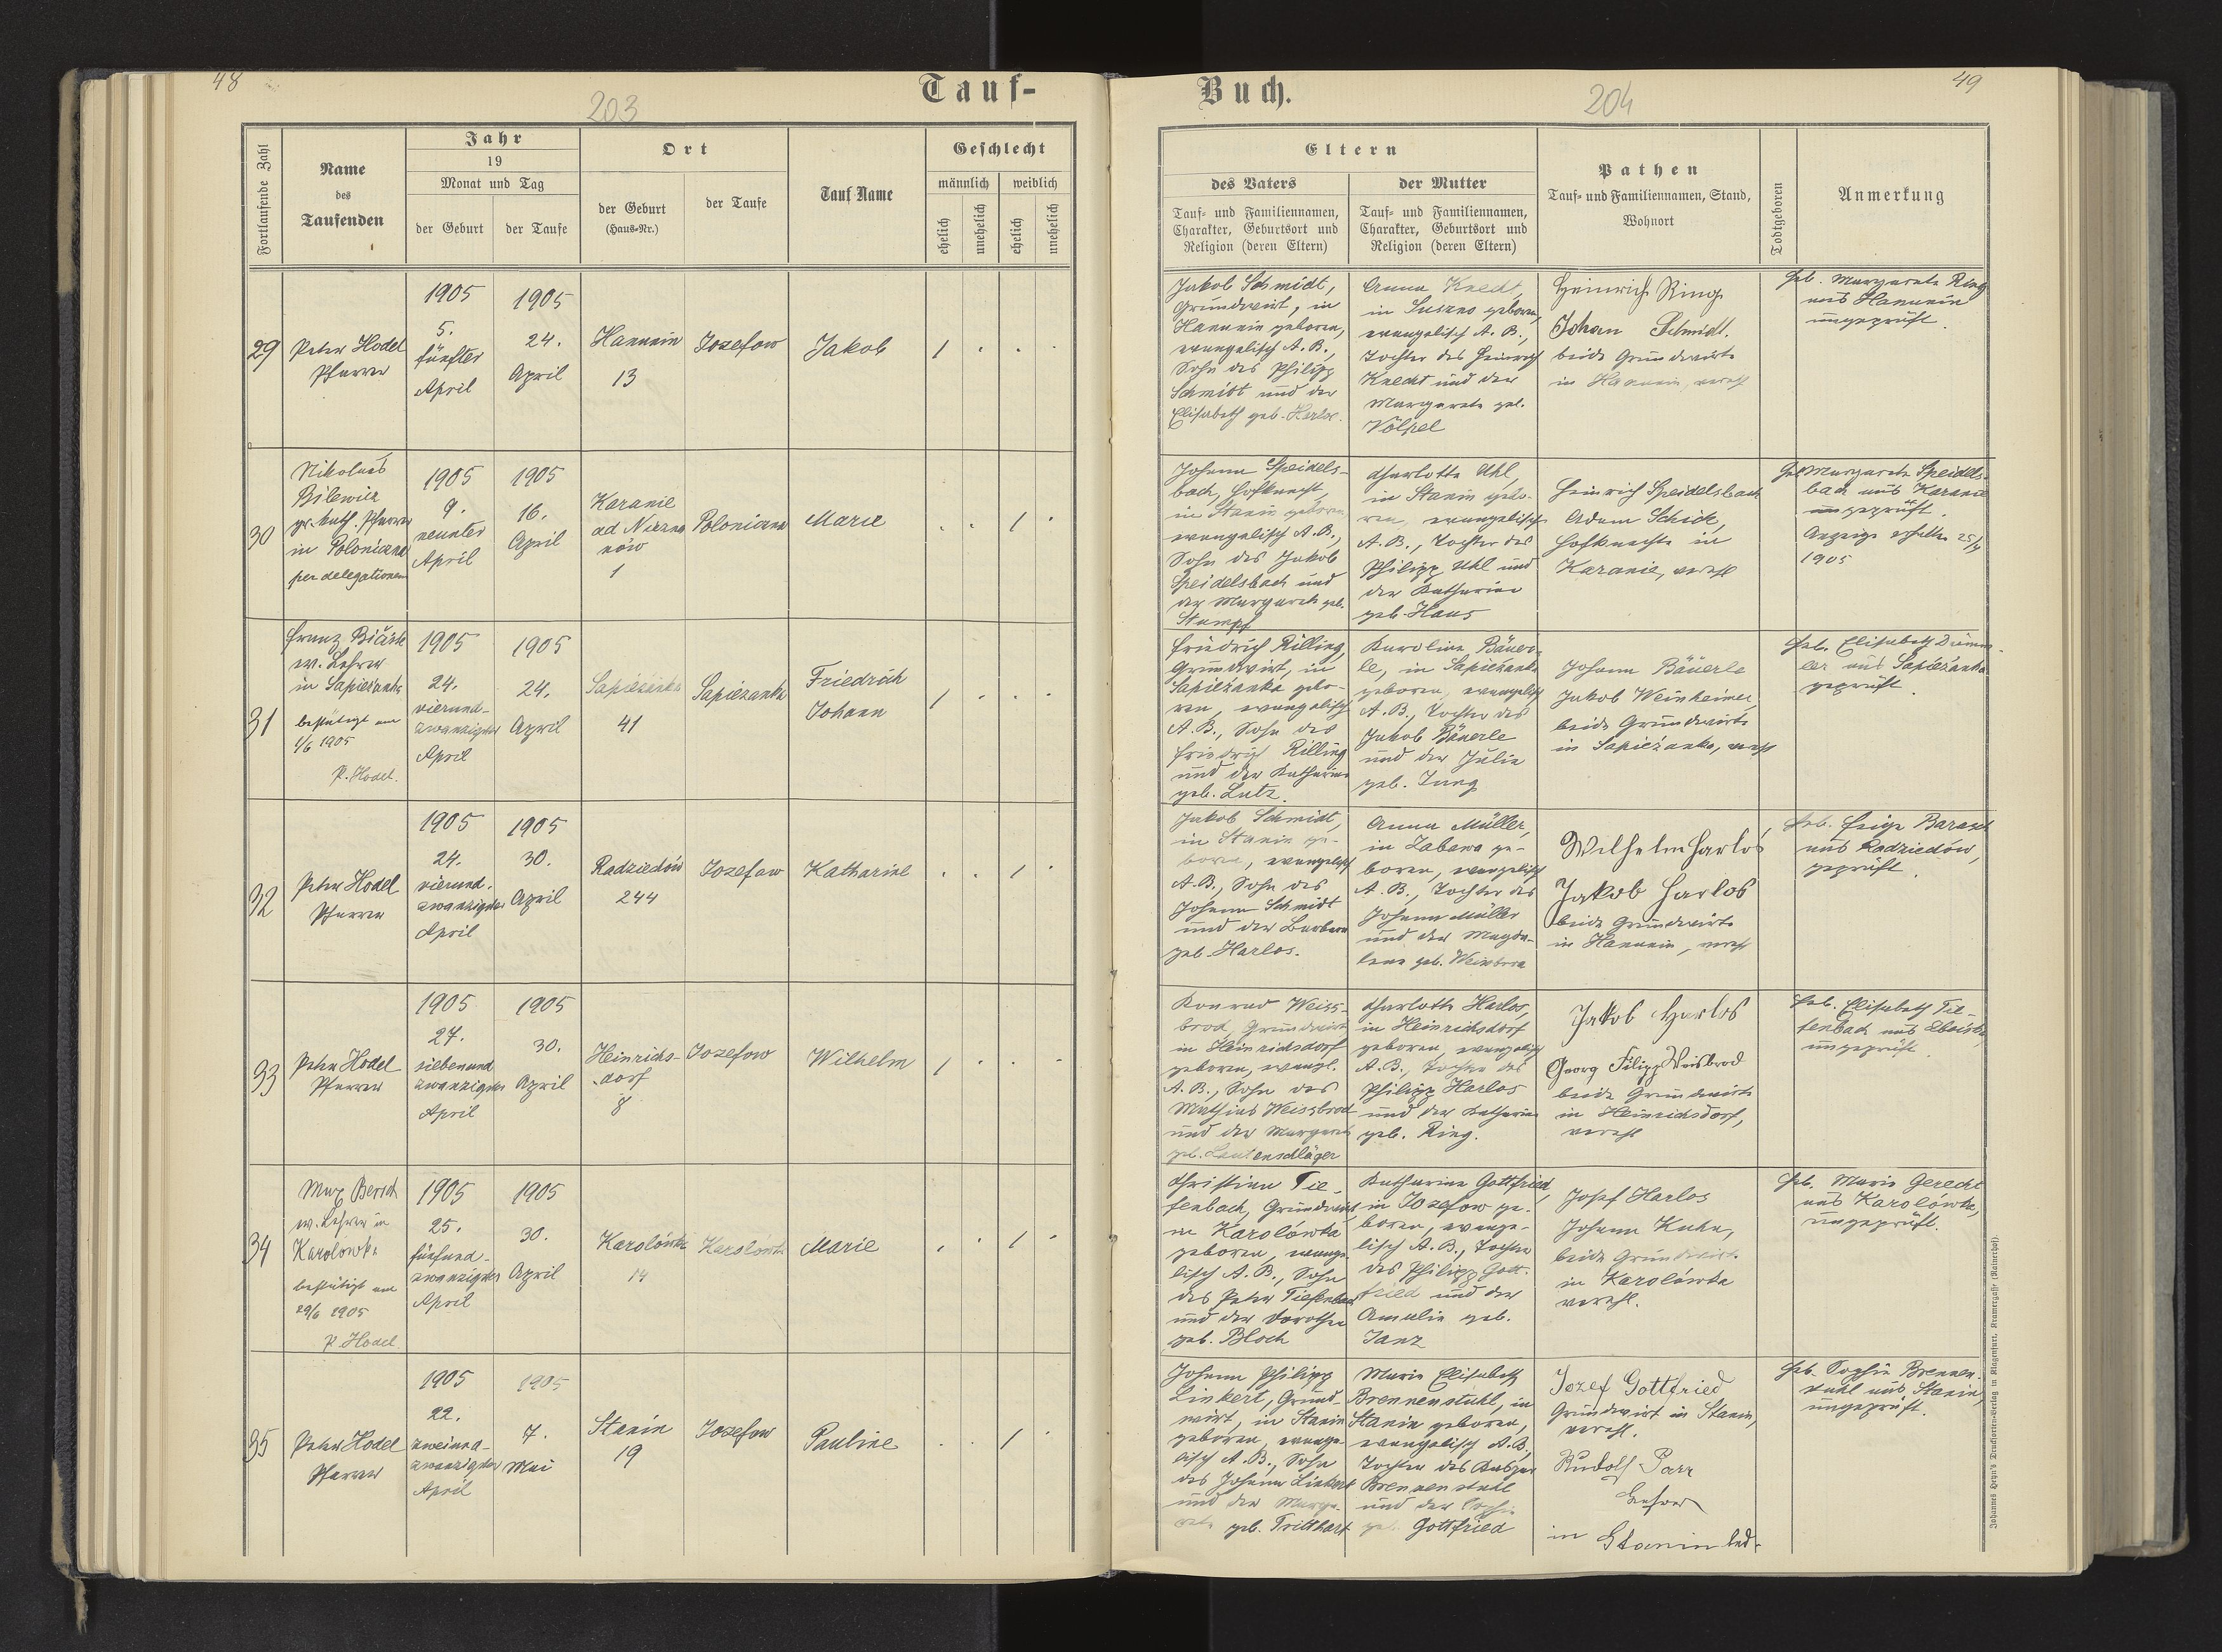 48
Tauf-
203
Fortlaufende Zahl
Name
des
Taufenden
Jahr
19
Monat und Tag
der Geburt
der Taufe
Ort
der Geburt
(Haus-Nr.)
der Taufe
Tauf Name
Geschlecht
männlich
weiblich
ehelich
unehelich
ehelich
unehelich
29
Peter Hodel
Pfarrer
1905
5.
fünfter
April
1905
24.
April
Hanunin
13
Jozefow
Jakob
1
30
Nikolaus
Bilewicz
gr. kath. Pfarrer
in Poloniczna
per delegationem
1905
9.
neunter
April
1905
16.
April
Karanie
ad Niezna
nów
1
Poloniczna
Marie
1
31
Franz
ev. Lehrer
in Sapieżanka
bestätigt am
1/6 1905
P. Hodel.
1905
24.
vierund-
zwanzigster
April
1905
24.
April
Sapieżanka
41
Sapieżanka
Friedrich
Johann
1
32
Peter Hodel
Pfarrer
1905
24.
vierund-
zwanzigster
April
1905
30.
April
Radziechów
244
Jozefow
Katharine
1
33
Peter Hodel
Pfarrer
1905
27.
siebenund
zwanzigster
April
1905
30.
April
Heinrichs-
dorf
8
Jozefow
Wilhelm
1
34
Max Bersch
ev. Lehrer in
Karolówka
bestätigt am
29/6 1905
P. Hodel
1905
25.
fünfund-
zwanzigster
April
1905
30.
April
Karolówka
14
Karolówka
Marie
1
35
Peter Hodel
Pfarrer
1905
22.
zweiund-
zwanzigster
April
1905
7.
Mai
Stanin
19
Jozefow
Pauline
1
49
Buch.
204
Eltern
des Vaters
Tauf- und Familiennamen,
Charakter, Geburtsort und
Religion (deren Eltern)
der Mutter
Tauf- und Familiennamen,
Charakter, Geburtsort und
Religion (deren Eltern)
Pathen
Tauf- und Familiennamen, Stand,
Wohnort
Todtgeboren
Anmerkung
Jakob Schmidt,
Grundwirt, in
Hanunin geboren,
evangelisch A. B.,
Sohn des Philipp
Schmidt und der
Elisabeth geb. Harlos.
Anna Knecht,
in Suszno geboren,
evangelisch A. B.,
Tochter des Heinrich
Knecht und der
Margarete geb.
Völpel
Heinrich Ring
Johan Schmidt.
beide Grundwirte
in Hanunin, vereh
Heb. Margarete Ring
aus Hanunin
ungeprüft.
Johann Speidels-
bach, Hofknecht,
in Stanin geboren,
evangelisch A. B.,
Sohn des Jakob
Speidelsbach und
der Margarete geb.
Stumpf
Charlotte Uhl,
in Stanin gebo-
ren, evangelisch
A. B., Tochter des
Philipp Uhl und
der Katharine
geb. Haus
Heinrich Speidelsbach
Adam Schick,
Hofknechte in
Karanie, verehl
Heb. Margarete Speidels-
bach aus Karanie
ungeprüft.
Anzeige erhalten 25/4
1905
Friedrich Rilling,
Grundwirt, in
Sapieżanka gebo-
ren, evangelisch
A. B., Sohn des
Friedrich Rilling
und der Katharine
geb. Lutz.
Karoline Bäuer-
le, in Sapieżanka
geboren, evangelisch
A. B., Tochter des
Jakob Bäuerle
und der Julie
geb. Jung
Johann Bäuerle
Jakob Weinheimer,
beide Grundwirte
in Sapieżanka, vereh
Heb. Elisabeth
aus Sapieżanka
geprüft.
Jakob Schmidt,
in Stanin ge-
boren, evangelisch
A. B., Sohn des
Johann Schmidt
und der Barbara
geb. Harlos.
Anna Müller,
in Zabawa ge-
boren, evangelisch
A. B., Tochter des
Johann Müller
und der Magda-
lena geb.
Wilhelm Harlos
Jakob Harlos
beide Grundwirte
in Hanunin, vereh
Heb. Feige Barasch
aus Radziechów,
geprüft.
Konrad Weiss-
brod, Grundwirt
in Heinrichsdorf
geboren, evangl.
A. B., Sohn des
Mathias Weissbrod
und der Margarete
geb. Lautenschläger
Charlotte Harlos,
in Heinrichsdorf
geboren, evangelisch
A. B., Tochter des
Philipp Harlos
und der Katharine
geb. Ring.
Jakob Harlos
Georg Filipp Weisbrod
beide Grundwirte
in Heinrichsdorf,
verehl
Heb. Elisabeth Tie-
fenbach aus
ungeprüft.
Christian Tie-
fenbach, Grundwirt
in Karolówka
geboren, evange-
lisch A. B., Sohn
des Peter Tiefenbach
und der Dorothea
geb. Bloch
Katharina Gottfried,
in Jozefow ge-
boren, evange-
lisch A. B., Tochter
des Philipp Gott-
fried und der
Amalie geb.
Janz
Josef Harlos
Johann Kuhn,
beide Grundwirte
in Karolówka
verehl.
Heb. Marie Gerecht
aus Karolówka,
ungeprüft.
Johann Philipp
Linkert, Grund-
wirt, in Stanin
geboren, evange-
lisch A. B., Sohn
des Johann Linkert
und der Marga-
rete geb. Tritthart
Marie Elisabeth
Brennenstuhl, in
Stanin geboren,
evangelisch A. B.,
Tochter des Kaspar
Brennenstuhl
und der Sophie
geb. Gottfried
Jozef Gottfried
Grundwirt in Stanin,
verehl.
Rudolf Parr
Lehrer
in Stanin led.
Heb. Sophie Brennen-
stuhl aus Stanin,
ungeprüft.
Johannes Heyn's Drucksorten-Verlag in Klagenfurt, Kramergasse (Rainerhof).